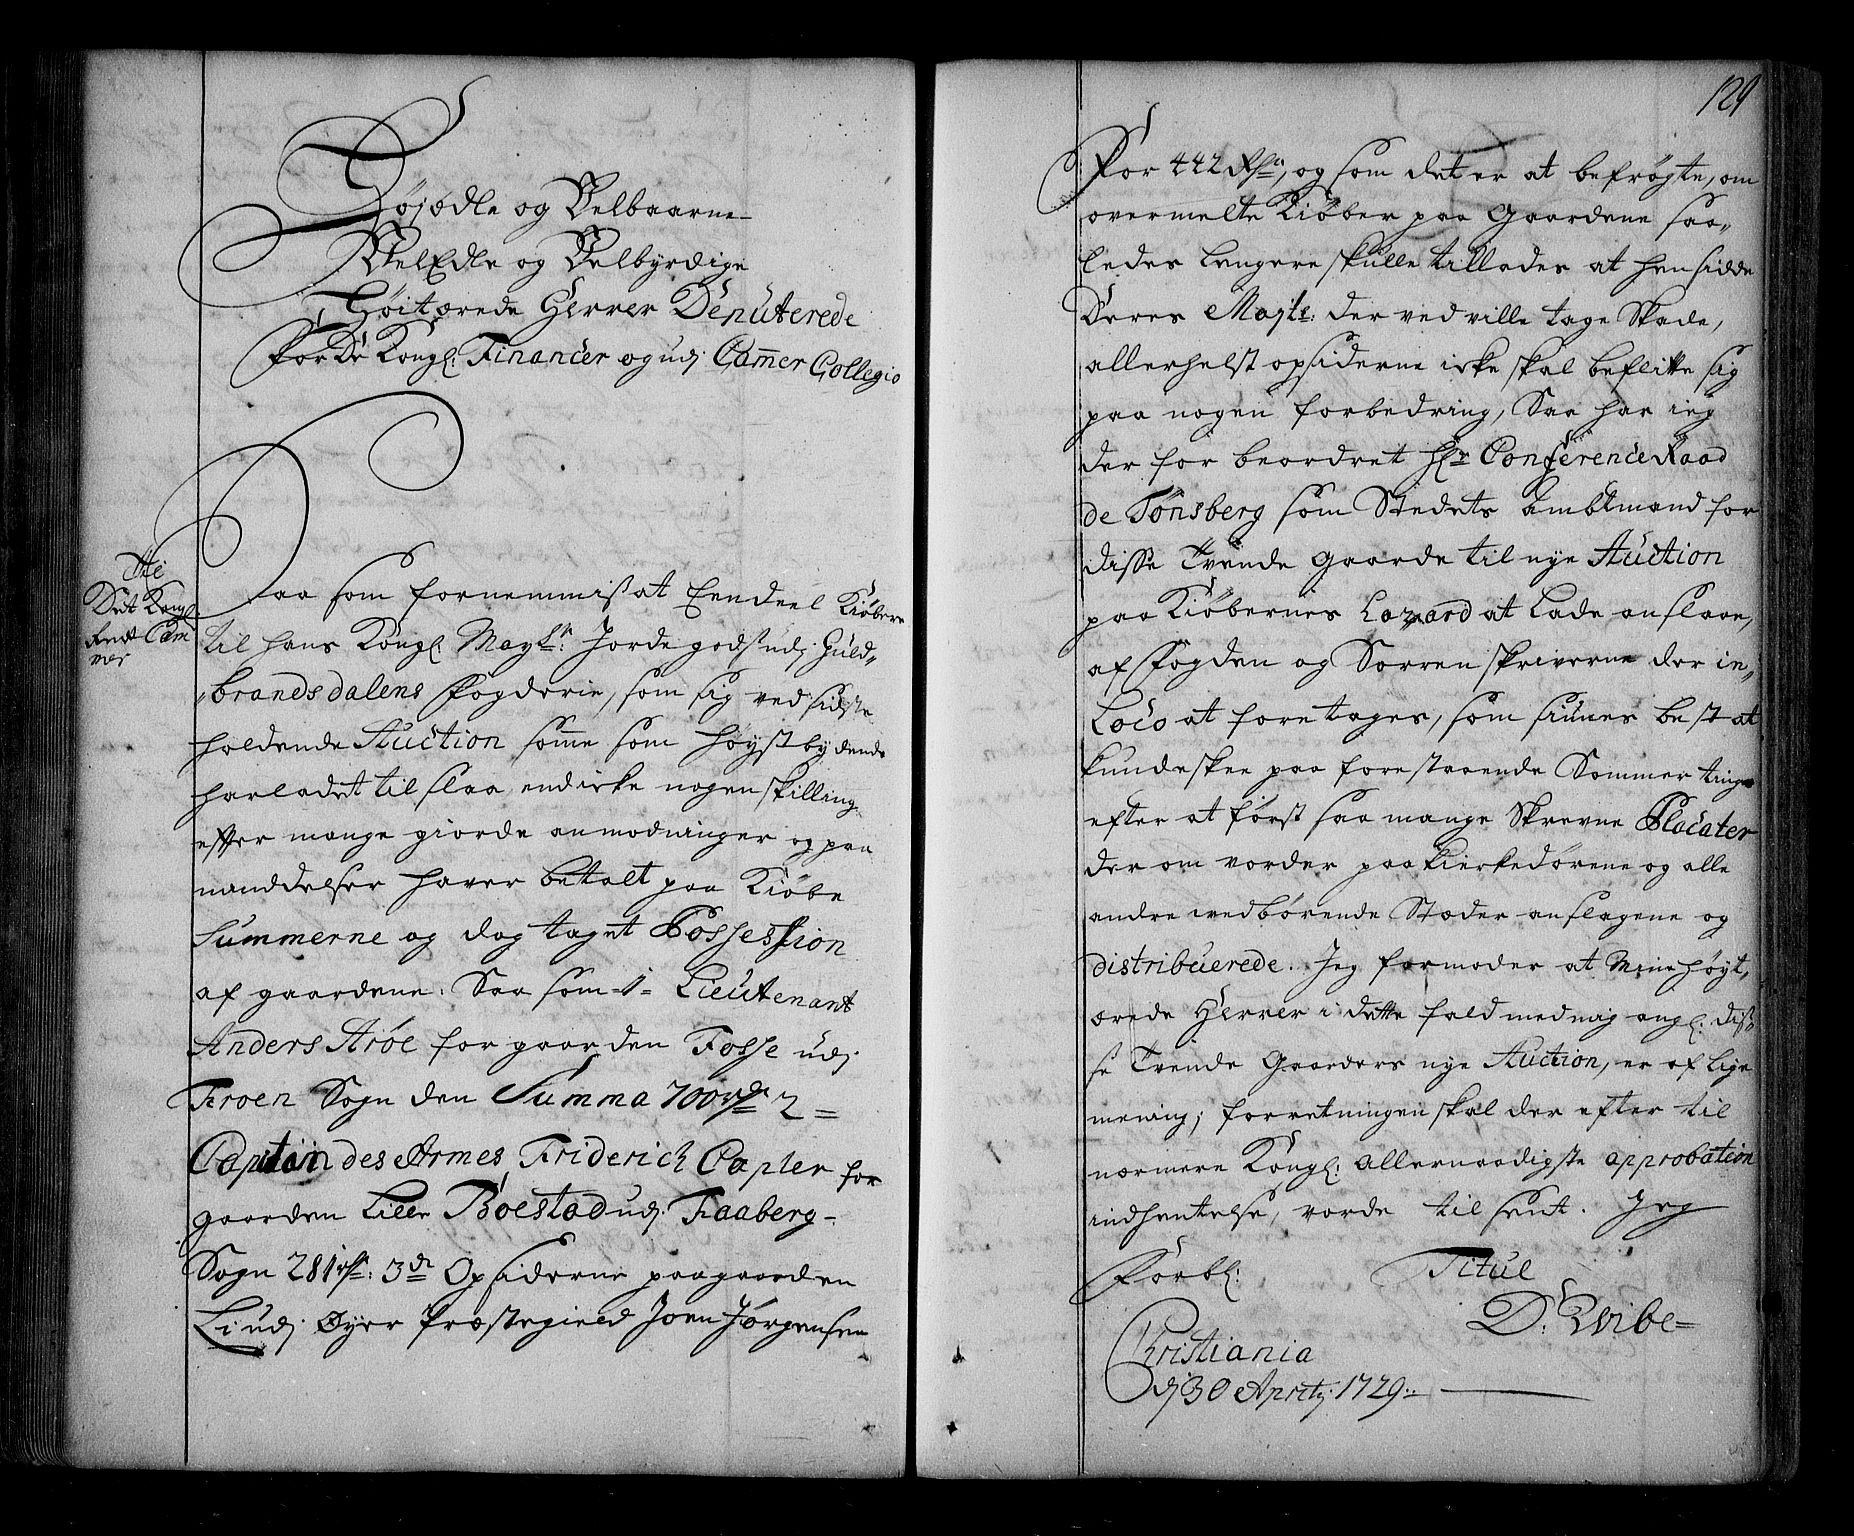 Højædle og Velbaarne
VelEdle og Velbyrdige
Høitærede Herrer Deputerede
For De Kongl: Financer og udj Cam̄er Collegio
Til
Det Kongl:
Rente Cam
mer
Saa som fornemmis at Eendeel Kiøbere
til hans Kongl: Mayts: Jordegods udj Guld„
„brandsdalens Fogderie, som sig ved sidste
holdende Auction som̄e som høystbydende
har ladet tilslaa, end icke nogen skilling
effter mange giorde anmodninger og paa
mindelser haver betalt paa Kiøbe
Summerne og dog taget Possession
af gaardene. Saa som 1= Lieutenant
Anders Arøe for gaarden Fosse udj
Froen Sogn den Summa 700 rdr 2=
Capitain des Armes Friderich Capler for
gaarden Lille Boestad udj Faaberg
Sogn 281 rdr: 3de Opsiderne paa gaarden
Li udj Øyer Præstegield Joen Jørgensen
129
For 442 Rdr, og som det er at befrøgte, om
overmelte Kiøber paa Gaardene saa„
ledes lengere skulle tillades at hensidde
Deres Mayts: der ved ville tage Skade,
allerhelst opsiderne icke skal beflitte sig
paa nogen forbedring, Saa har ieg
der for beordret Hr Conference Raad
de Tønsberg som Stedets Ambtmand for
disse Trende Gaarde til nye Auction
paa Kiøbernes Lazard at lade anslaae,
af Fogden og Sorrenskriverne der in„
Loco at foretages, som siunes best at
kunde skee paa forestaaende Sommer ting
efter at først saa mange Skrevne Placater
der om vorder paa Kierkedørene og alle
andre vedbørende Stæder anslagene og
distribuerede. Jeg formoder at Mine høyt„
ærede Herrer i dette fald med mig angl: dis„
se Trende Gaarders nye Auction, er af lige
mening; forretningen skal der efter til
nærmere Kongl: allernaadigste approbation
indhentelse, vorde tilsent. Jeg
Forbl: Titul
D: Wibe=
Christiania
dj 30 Aprily 1729.